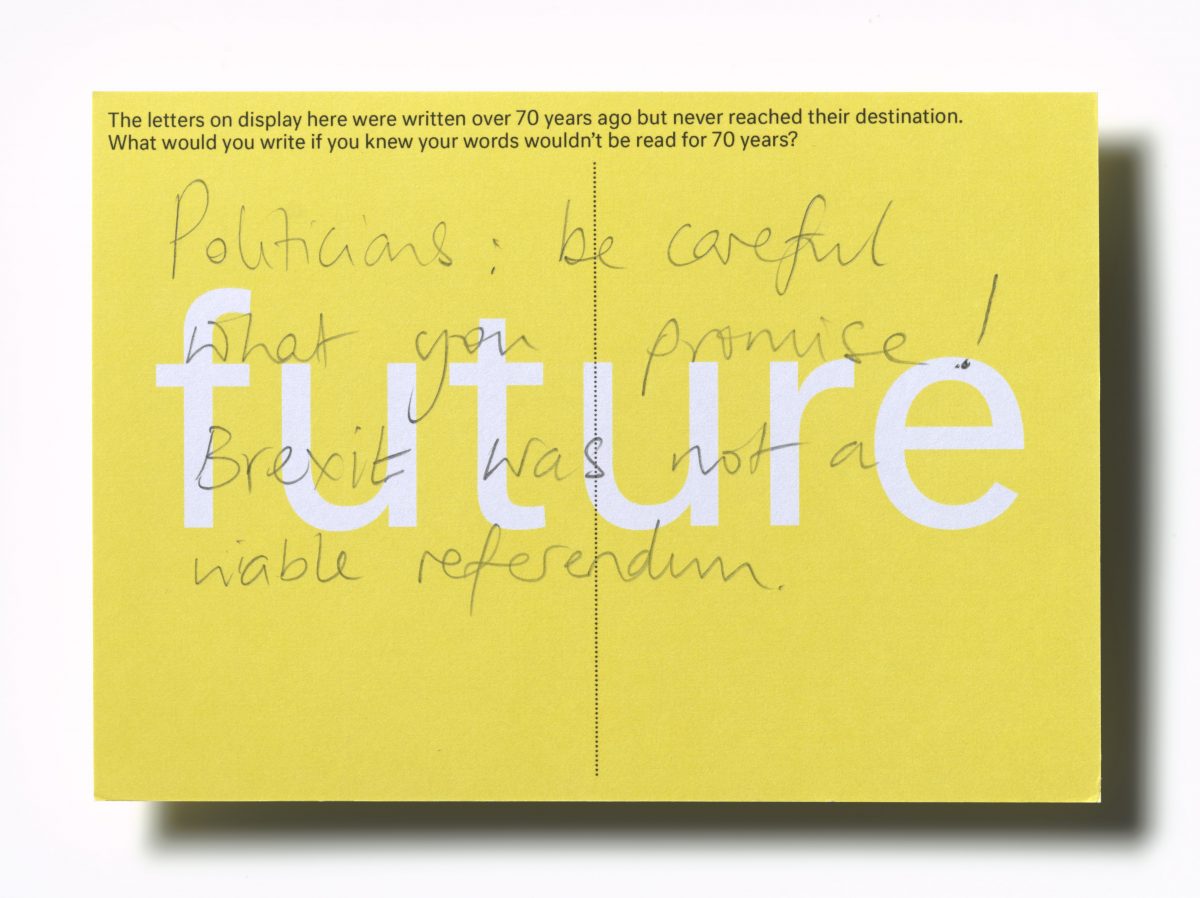 The letters on display here were written over 70 years ago but never reached their destination.
What would you write if you knew your words wouldn't be read for 70 years?
Politicians: be careful
what you promise!
future
Brexit was not a
viable referendum.